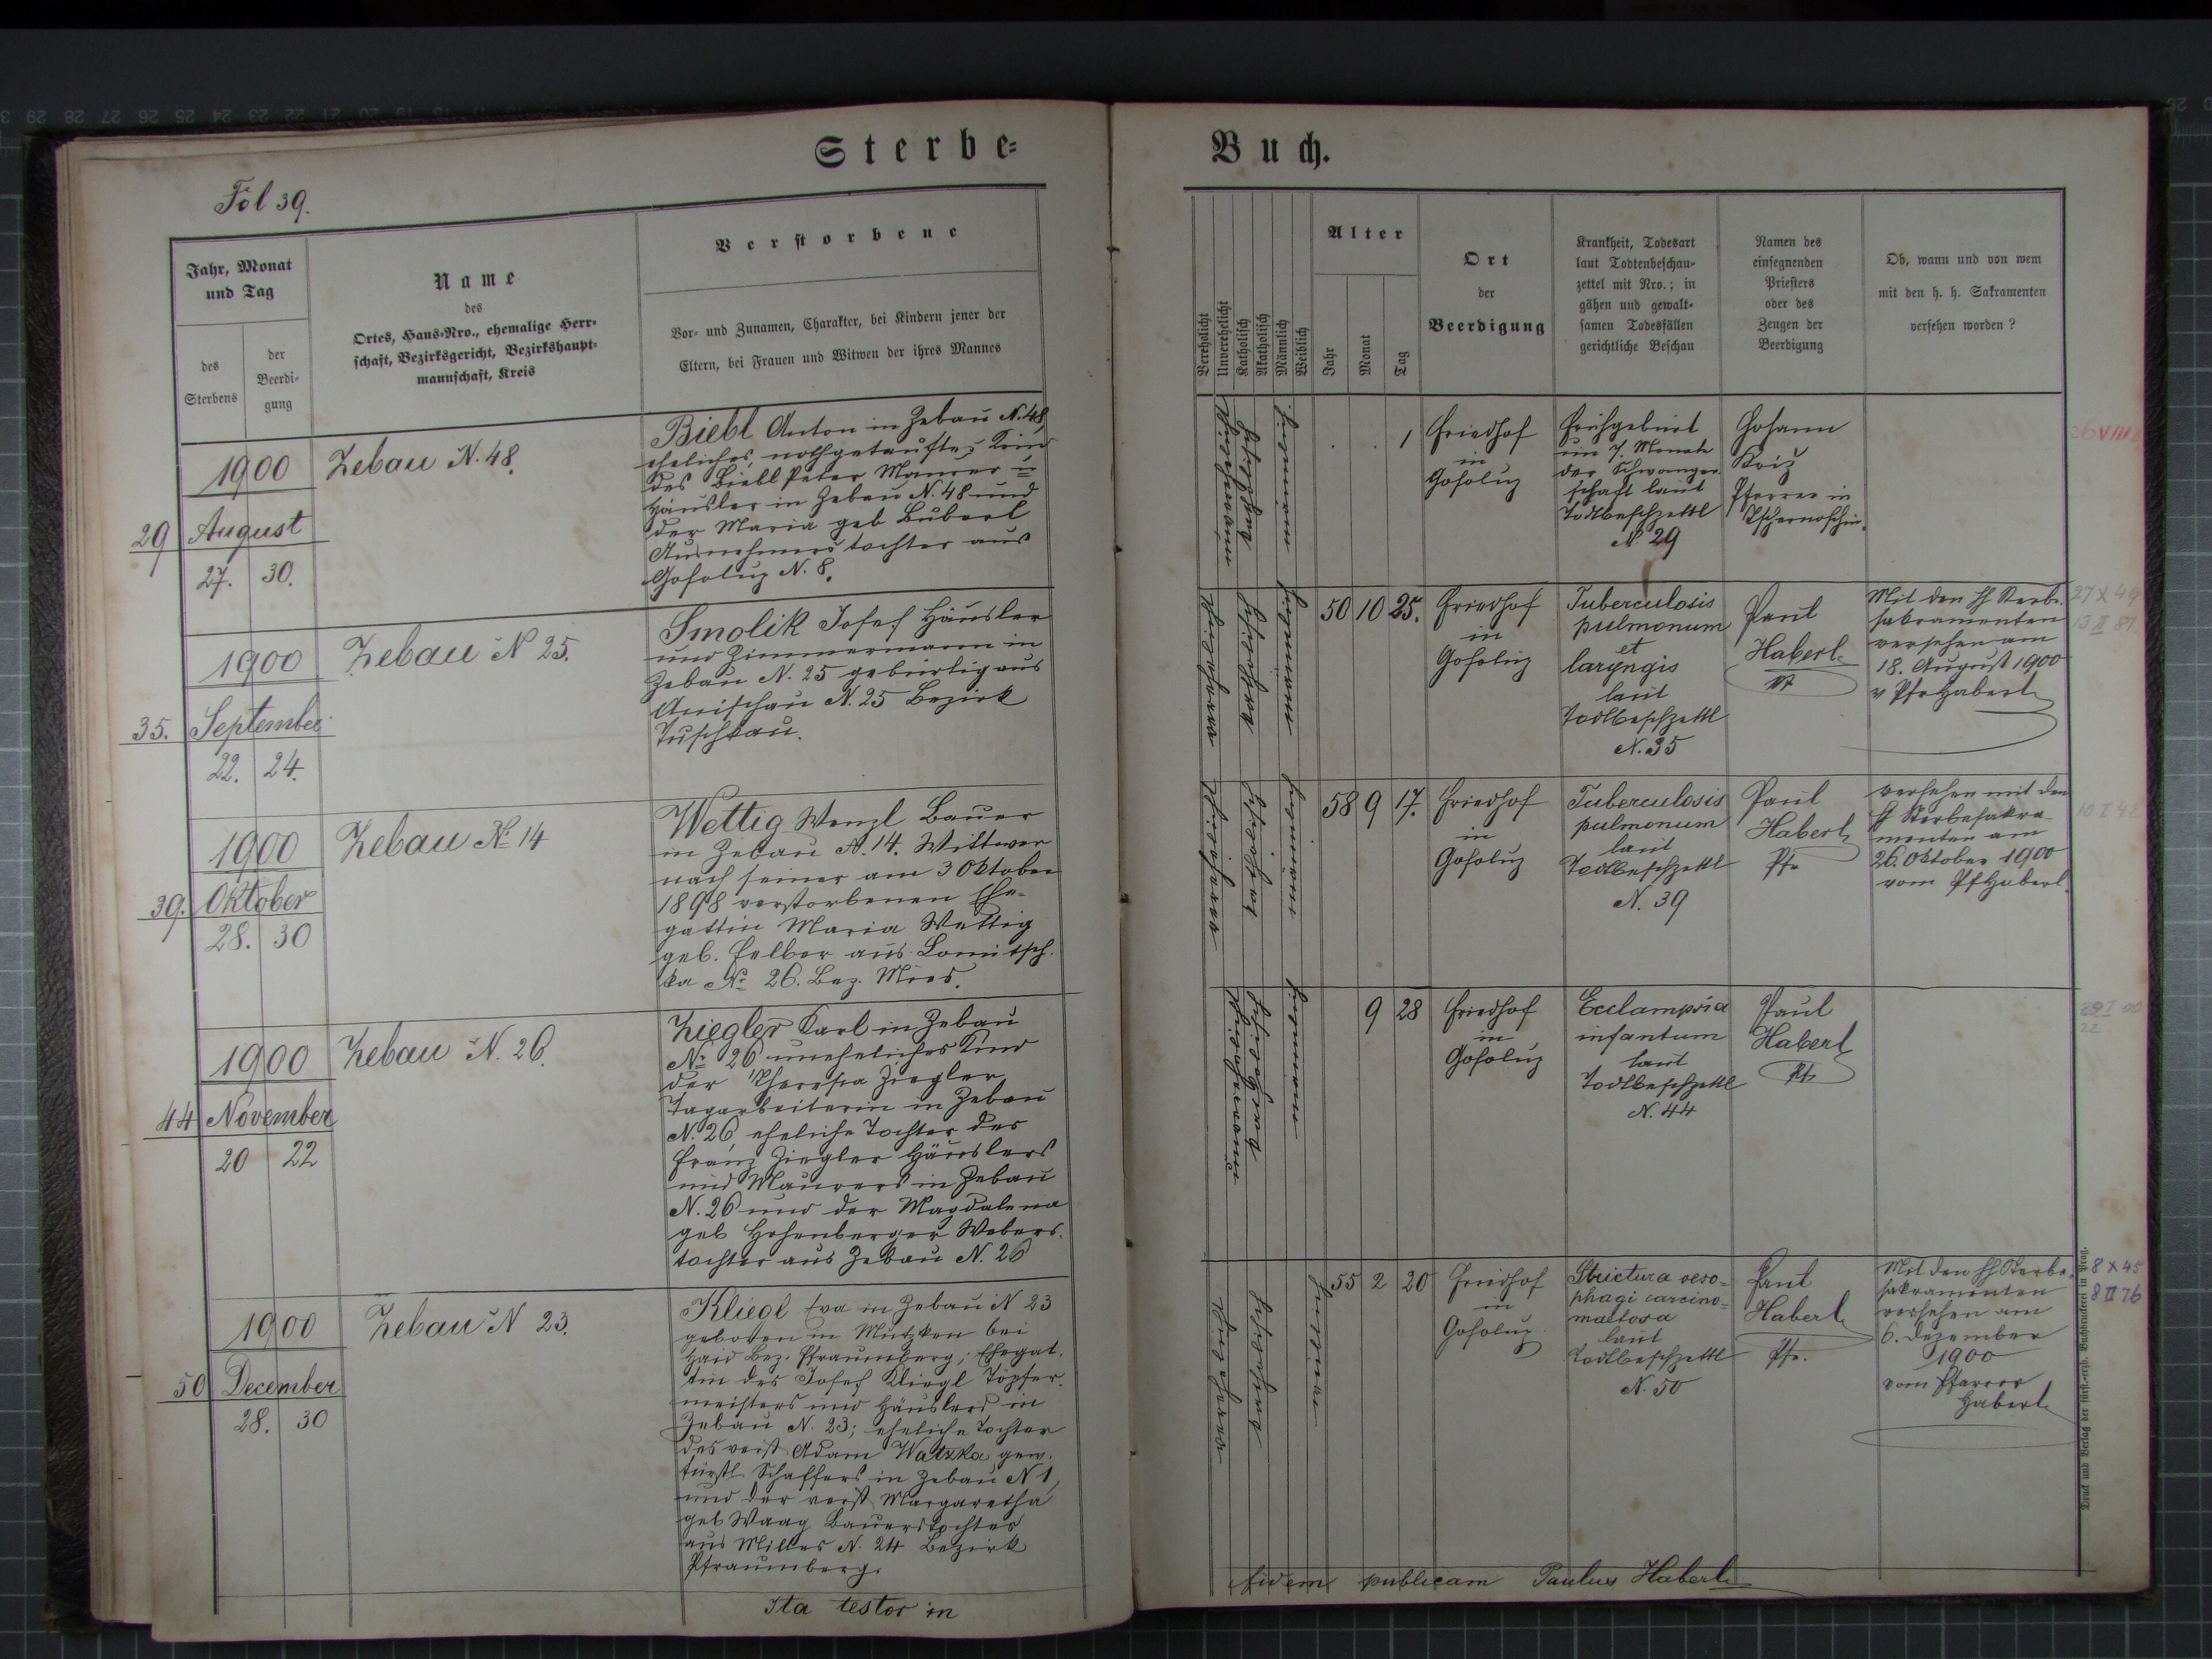 Sterbe=
Buch.
Fol 39.
Jahr, Monat
und Tag
des
Sterbens
der
Beerdi-
gung
Name
des
Ortes, Haus-Nro., ehemalige Herr-
schaft, Bezirksgericht, Bezirkshaupt-
mannschaft, Kreis
Verstorbene
Vor- und Zunamen, Charakter, bei Kindern jener der
Eltern, bei Frauen und Witwen der ihres Mannes
Verehelicht
Unverehelicht
Katholisch
Akatholisch
Männlich
Weiblich
Alter
Jahr
Monat
Tag
Ort
der
Beerdigung
Krankheit, Todesart
laut Todtenbeschau-
zettel mit Nro.; in
gähen und gewalt-
samen Todesfällen
gerichtliche Beschau
Namen des
einsegnenden
Priesters
oder des
Zeugen der
Beerdigung
Ob, wann und von wem
mit den h. h. Sakramenten
versehen worden?
29
1900
August
27. 30.
Zebau N. 48.
Biebl Anton in Zebau N. 48,
eheliches nothgetauftes Kind
des Biebl Peter Maurer u
Häusler in Zebau N. 48 und
der Maria geb Buberl
Ausnehmers tochter aus
Gosolup N. 8.
1
Friedhof
in
Gosolup
Frühgeburt
im 7. Monate
der Schwanger
schaft laut
Todtbeschzettl
N 29
Johann
Kriz
Pfarrer in
Tschernoschin.
35.
1900
September
22. 24.
Zebau N 25.
Smolik Josef Häusler
und Zimmermann in
Zebau N. 25 gebürtig aus
N. 25 Bezirk
Tuschkau.
50 10 25.
Friedhof
in
Gosolup
Tuberculosis
pulmonum
et
laryngis
laut
Todtbeschzettl
N. 35
Paul
Haberl
Pf
Mit den hh Sterbe.
sakramenten
versehen am
18. August 1900
v Pfr Haberl
27 X 49
13 II 87
39.
1900
Oktober
28. 30
Zebau No 14
Wettig Wenzl Bauer
in Zebau N. 14. Wittwer
nach seiner am 3 Oktober
1898 verstorbenen Ehe-
gattin Maria Wettig
geb. Felber aus Lomitsch.
ka No 26. Bez. Mies.
58 9 17.
Friedhof
in
Gosolup
Tuberculosis
pulmonum
laut
Todtbeschzettl
N. 39
Paul
Haberl
Pfr
versehen mit den
hh Sterbesakra-
menten am
26. Oktober 1900
vom Pf Haberl.
10 I 42
44
1900
November
20 22
Zebau N. 26.
Ziegler Karl in Zebau
No 26 uneheliches Kind
der Theresia Ziegler
Tagarbeiterin in Zebau
N. 26, eheliche Tochter des
Franz Ziegler Häuslers
und Maurers in Zebau
N. 26 und der Magdalena
geb Hohenberger Webers.
tochter aus Zebau N. 26
9 28
Friedhof
in
Gosolup
Ecclampsia
infantum
laut
Todtbeschzettl
N. 44
Paul
Haberl
Pf
50
1900
December
28. 30
Zebau N 23.
Kliegl Eva in Zebau N 23
geboren in Mutzken bei
Haid Bez. Pfraumberg; Ehegat.
tin des Josef Kliegl Töpfer.
meisters und Häuslers in
Zebau N. 23; eheliche Tochter
des verst Adam Watzka gew.
fürstl. Schaffers in Zebau N 1,
und der verst Margaretha
geb Waag Bauerstochter
aus Milles N. 24 Bezirk
Pfraumberg.
55 2 20
Friedhof
in
Gosolup
Strictura oeso=
phagi carcino=
mattosa
laut
Todtbeschzettl
N. 50
Paul
Haberl
Pfr.
Mit den hh Sterbe.
sakramenten
versehen am
6. Dezember
1900
vom Pfarrer
Haberl
8 X 45
8 II 76
Ita testor in
fidem publicam Paulus Haberl
Druck und Verlag der fürst.-erzb. Buchdruckerei in Prag.